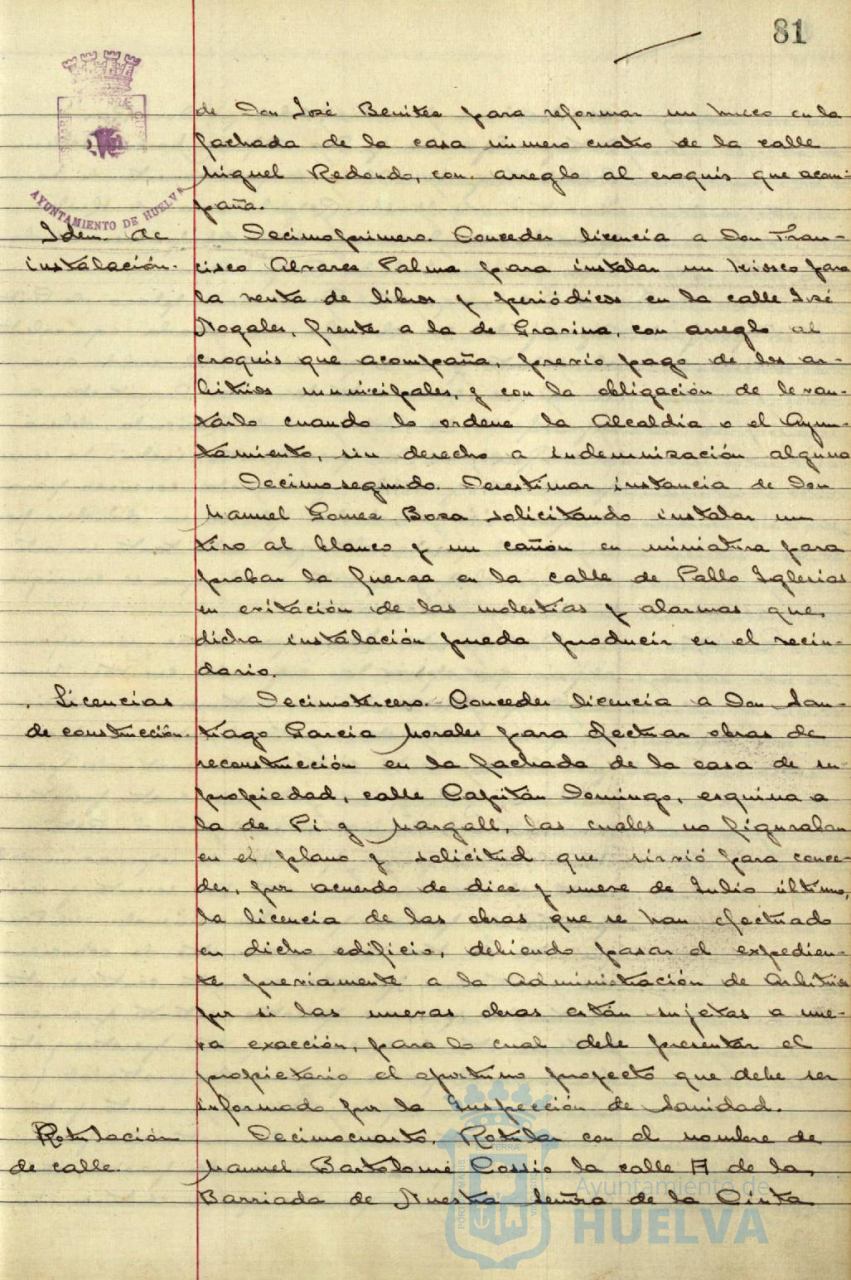 81
AYUNTAMIENTO DE HUELVA
de Don José Benítez para reformar un hueco en la
fachada de la casa número cuatro de la calle
Miguel Redondo, con arreglo al croquis que acom-
paña.
Idem. de
instalación.
Decimoprimero. Conceder licencia a Don Fran-
cisco Alvarez Palma para instalar un kiosco para
la venta de libros y periódicos en la calle José
Nogales, frente a la de Gravina, con arreglo al
croquis que acompaña, previo pago de los ar-
bitrios municipales, y con la obligación de levan-
tarlo cuando lo ordene la Alcaldía o el Ayun-
tamiento, sin derecho a indemnización alguna
Decimosegundo. Desestimar instancia de Don
Manuel Gomez Boza solicitando instalar un
tiro al blanco y un cañón en miniatura para
probar la fuerza en la calle de Pablo Iglesias
en evitación de las molestias y alarmas que
dicha instalación pueda producir en el vecin-
dario.
Licencias
de construcción.
Decimotercero. Conceder licencia a Don San-
tiago García Morales para efectuar obras de
reconstrucción en la fachada de la casa de su
propiedad, calle Capitán Domingo, esquina a
la de Pi y Margall, las cuales no figuraban
en el plano y solicitud que sirvió para conce-
der, por acuerdo de diez y nueve de Julio último,
la licencia de las obras que se han efectuado
en dicho edificio, debiendo pasar el expedien-
te previamente a la Administración de Arbitrios
por si las nuevas obras están sujetas a nue-
va exacción, para lo cual debe presentar el
propietario el oportuno proyecto que debe ser
informado por la Inspección de Sanidad.
Rotulación
de calle.
Decimocuarto. Rotular con el nombre de
Manuel Bartolomé Cossio la calle A de la
Barriada de Nuestra Señra de la Cinta
Ayuntamiento de
HUELVA